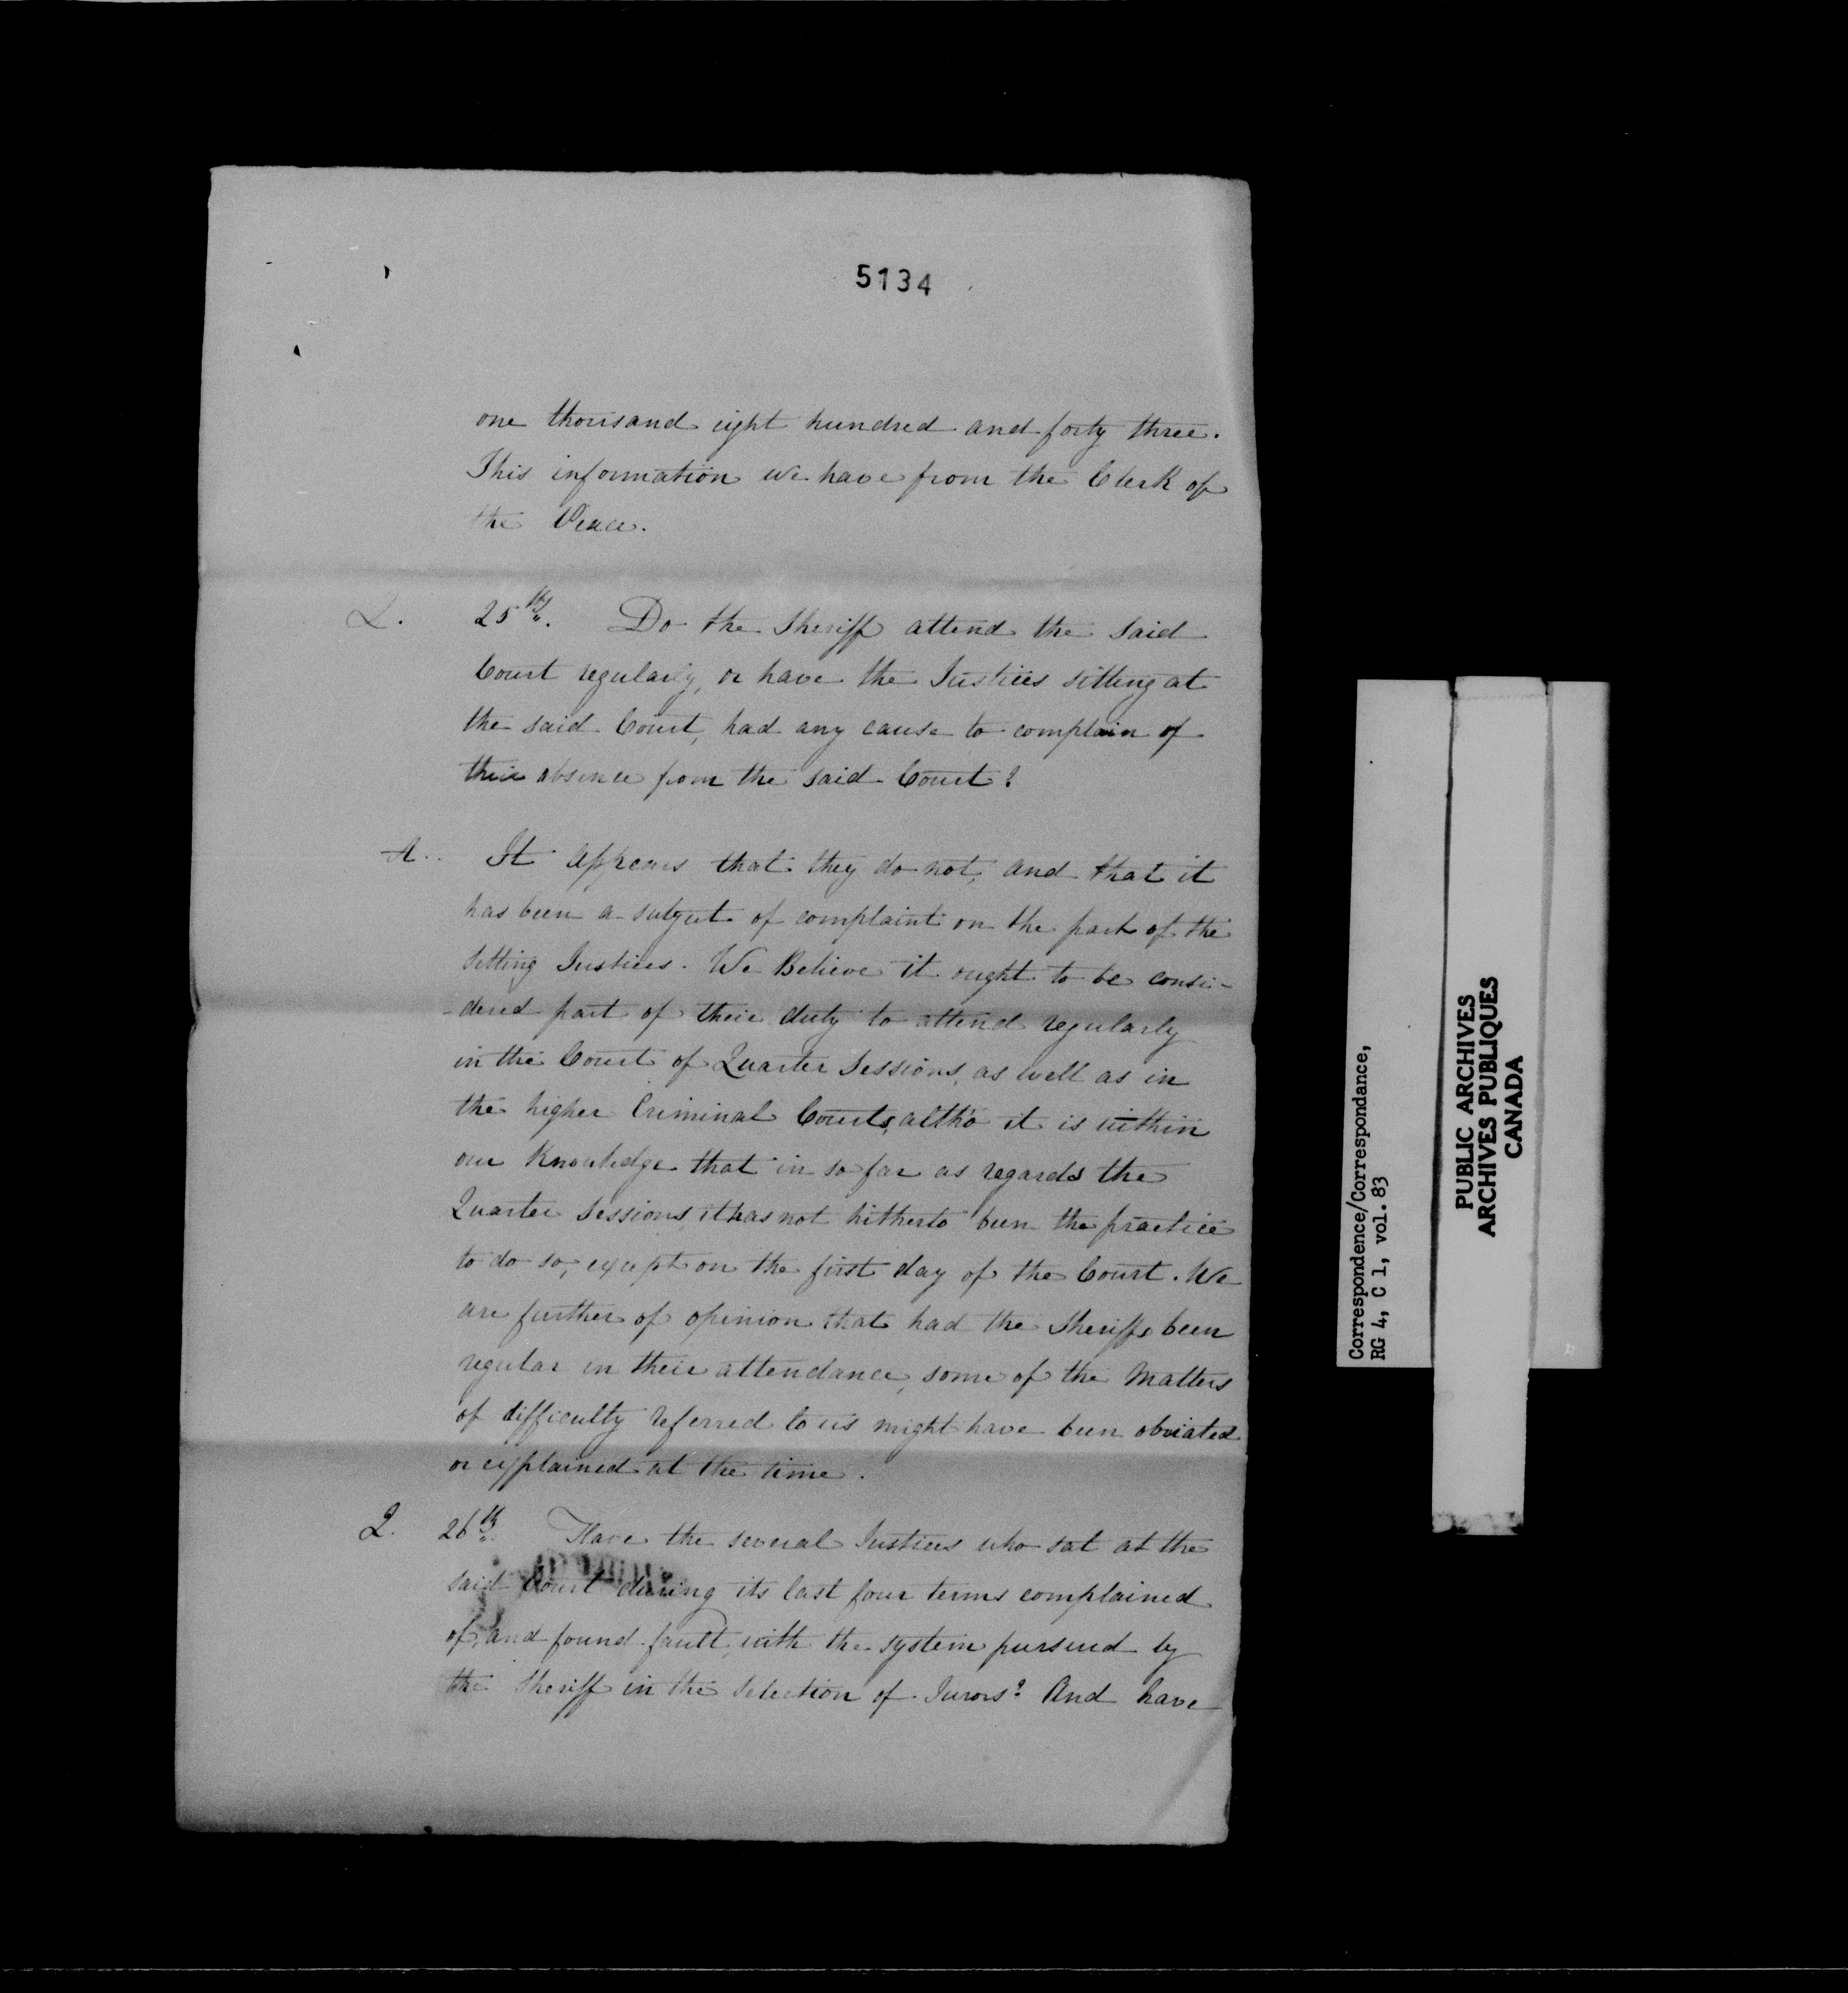 5134
one thousand eight hundred and forty three.
This information we have from the Clerk of
the Peace.
Q. 25th. Do the Sheriff attend the said
Court regularly, or have the Justices sitting at
the said Court, had any cause to complain of
their absence from the said Court?
A. It appears that they do not, and that it
has been a subject of complaint on the part of the
Sitting Justices. We Believe it ought to be consi-
dered part of their duty to attend regularly
in the Court of Quarter Sessions, as well as in
the higher Criminal Courts, altho it is within
our Knowledge that in so far as regards the
Quarter Sessions, it has not hitherto been the practice
to do so, except on the first day of the Court. We
are further of opinion that had the Sheriffs been
regular in their attendance, some of the Matters
of difficulty referred to us might have been obviated
or explained at the time.
Q. 26th. Have the several Justices who sat at the
said Court during its last four terms complained
of, and found fault, with the system pursued by
the Sheriff in the Selection of Jurors? And have
Correspondence/Correspondance,
RG 4, C 1, vol. 83
PUBLIC ARCHIVES
ARCHIVES PUBLIQUES
CANADA